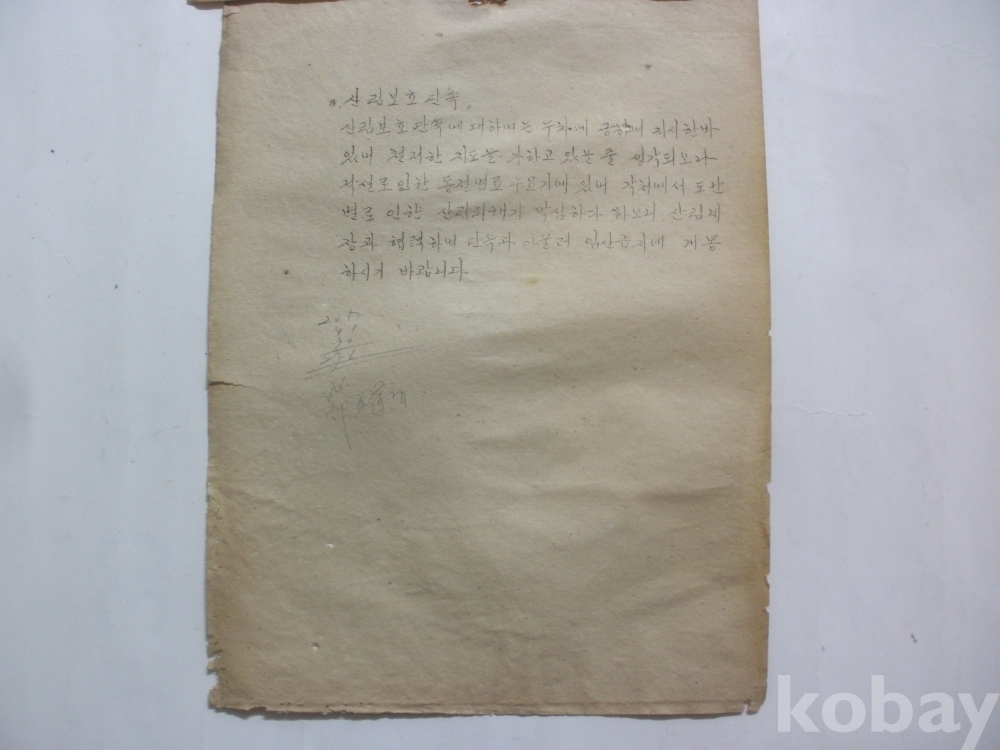 3. 산림보호단속.
산림보호단속에 대하여는 누차에 긍하여 지시한바
있어 철저한 지도를 가하고 있는 줄 생각되오나
적설로인한 동절연료 수요기에 있어 각처에서 도난
벌로 인한 산림피해가 막심하다 하오니 산림계
장과 협력하여 단속과 아울러 입산금지에 계몽
하시기 바랍니다
kobay